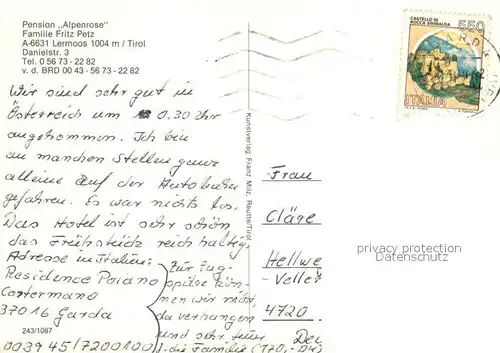 Pension „Alpenrose"
Familie Fritz Petz
A-6631 Lermoos 1004 m / Tirol
Danielstr. 3
Tel. 0 56 73 - 22 82
v. d. BRD 00 43 - 56 73 - 22 82
Wir sind sehr gut in
Österreich um 0.30 Uhr
angekommen. Ich bin
an manchen Stellen ganz
alleine auf der Autobahn
gefahren. Es war nichts los.
Das Hotel ist sehr schön
das Frühstück reichhaltig.
Adresse in Italien:
Residence Poiano
Costermano
37016 Garda
003945/7200100
243/1087
Zur Zug-
spitze kön-
nen wir nicht,
da verhangen
und sehr teuer
für die Familie (170,-DM)
Kunstverlag Franz Milz, Reutte/Tirol
CASTELLO DI
ROCCA SINIBALDA
550
ITALIA
GARDA
Frau
Cläre
Hellwe
Veller
4720
Deu
privacy protection
Datenschutz